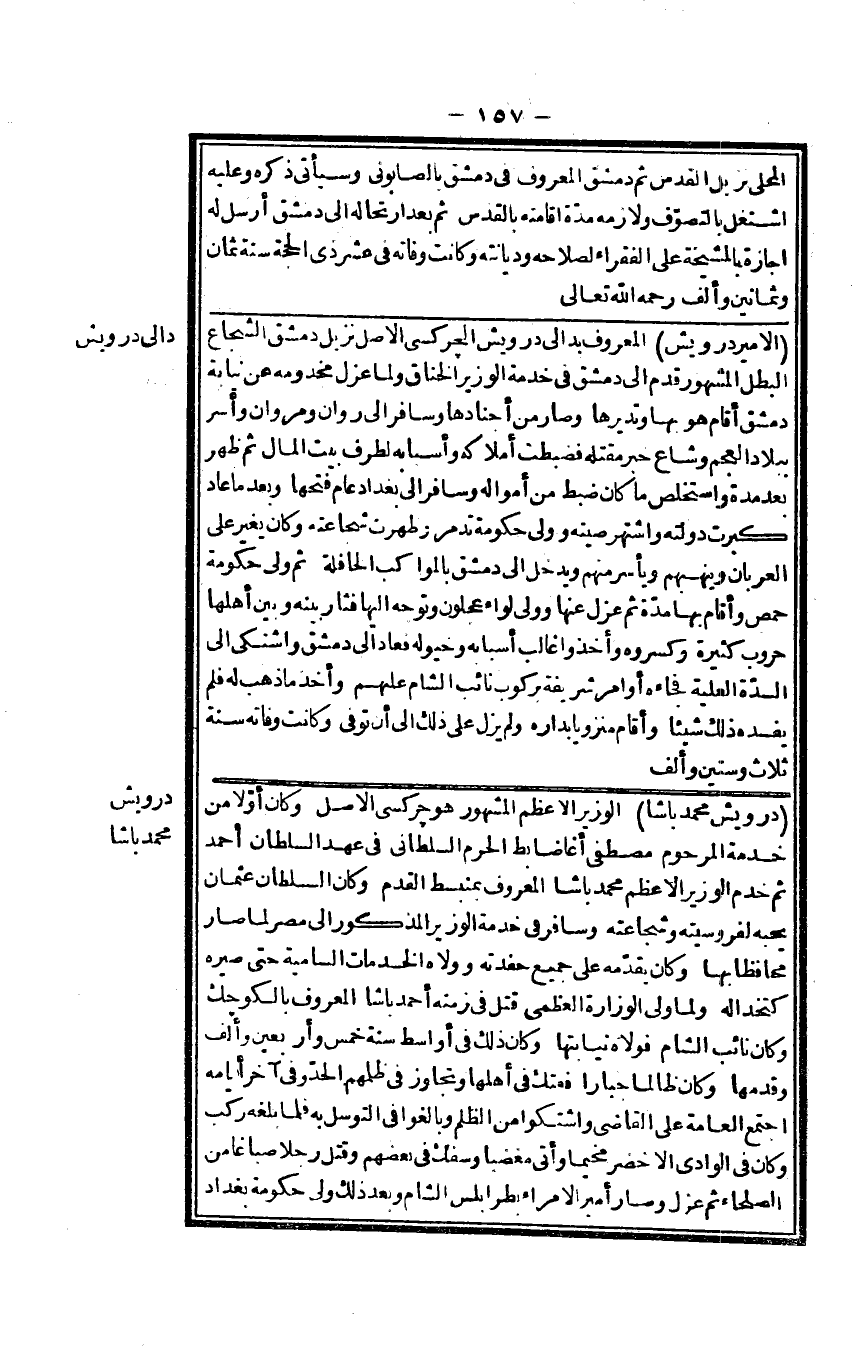 - ١٥٧ -
المحلى نزيل القدس ثم دمشق المعروف فى دمشق بالصابونى وسيأتى ذكره وعليه
اشتغل بالتصوّف ولازمه مدّة اقامته بالقدس ثم بعد ارتحاله الى دمشق أرسل له
اجازة بالمشيخة على الفقراء لصلاحه وديانته وكانت وفاته فى عشر ذى الحجة سنة ثمان
وثمانين وألف رحمه الله تعالى
دالى درويش
(الامير درويش) المعروف بدالى درويش الچركسى الاصل نزيل دمشق الشجاع
البطل المشهور قدم الى دمشق فى خدمة الوزير الخناق ولما عزل مخدومه عن نيابة
دمشق أقام هو بها وتديرها وصار من أجنادها وسافر الى روان ومروان وأسر
ببلاد العجم وشاع خبر مقتله فضبطت أملاكه وأسبابه لطرف بيت المال ثم ظهر
بعد مدة واستخلص ما كان ضبط من أمواله وسافر الى بغداد عام فتحها وبعد ما عاد
كبرت دولته واشتهر صيته وولى حكومة تدمر وظهرت شجاعته وكان يغير على
العربان وينهبهم ويأسر منهم ويدخل الى دمشق بالمواكب الحافلة ثم ولى حكومة
حمص وأقام بها مدّة ثم عزل عنها وولى لواء عجلون وتوجه اليها فثار بينه وبين أهلها
حروب كثيرة وكسروه وأخذوا غالب أسبابه وخيوله فعاد الى دمشق واشتكى الى
السدّة العلية فجاءه أوامر شريفة بركوب نائب الشام عليهم وأخذ ما ذهب له فلم
يفده ذلك شيئا وأقام منزويا بداره ولم يزل على ذلك الى أن توفى وكانت وفاته سنة
ثلاث وستين وألف
درويش
محمد باشا
(درويش محمد باشا) الوزير الاعظم المشهور هو چركسى الاصل وكان أوّلا من
خدمة المرحوم مصطفى أغا ضابط الحرم السلطانى فى عهد السلطان أحمد
ثم خدم الوزير الاعظم محمد باشا المعروف بمنبسط القدم وكان السلطان عثمان
يحبه لفروسيته وشجاعته وسافر فى خدمة الوزير المذكور الى مصر لما صار
محافظا بها وكان يقدّمه على جميع حفدته وولاه الخدمات السامية حتى صيره
كتخداله ولما ولى الوزارة العظمى قتل فى زمنه أحمد باشا المعروف بالكوچك
وكان نائب الشام فولاه نيابتها وكان ذلك فى أواسط سنة خمس وأربعين وألف
وقدمها وكان ظالما جبارا ففتك فى أهلها وتجاوز فى ظلمهم الحدّ وفى آخر أيامه
اجتمع العامة على القاضى واشتكوا من الظلم وبالغوا فى التوسل به فلما بلغه ركب
وكان فى الوادى الاخضر مخيما وأتى مغضبا وسفك فى بعضهم وقتل رجلا صباغا من
الصلحاء ثم عزل وصار أمير الامراء بطرابلس الشام وبعد ذلك ولى حكومة بغداد